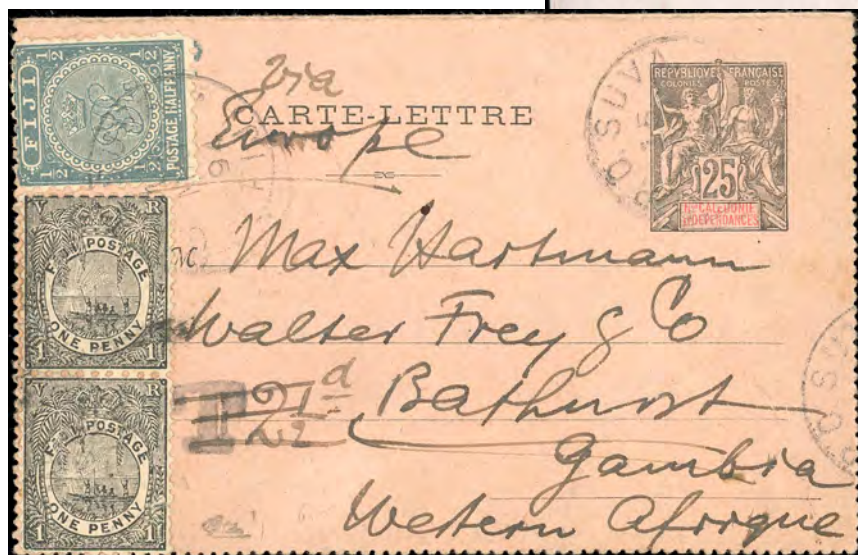 ½ ½
FIJI
POSTAGE HALFPENNY
½ ½
via
CARTE-LETTRE
Europe
REPUBLIQUE FRANÇAISE
COLONIES POSTES
25
Nlle CALEDONIE
ET DEPENDANCES
P.O. SUVA
V R
FIJI POSTAGE
1 ONE PENNY 1
V R
FIJI POSTAGE
1 ONE PENNY 1
M
Max Hartmann
Walter Frey & Co
T 2½d Bathurst
Gambia
Western Afrique
P.O. SUV